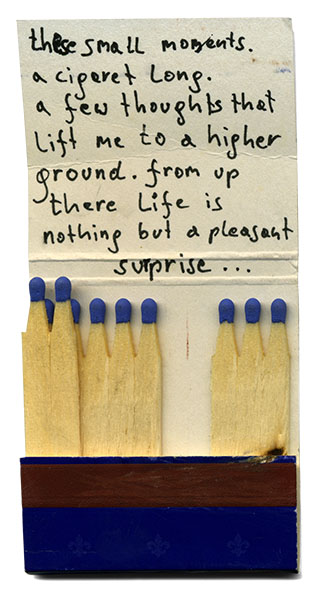 these small moments.
a cigaret long.
a few thoughts that
Lift me to a higher
ground. from up
there Life is
nothing but a pleasant
surprise ...